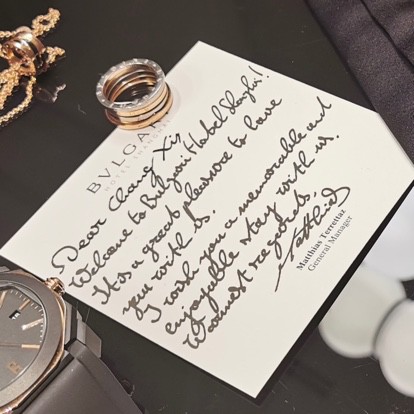 BVLGARI
Dear Chang Xi,
Welcome to Bulgari Hotel Shanghai!
It is a great pleasure to have
you with us.
I wish you a memorable and
enjoyable stay with us.
Warmest regards,
Matthias
Matthias Terrettaz
General Manager